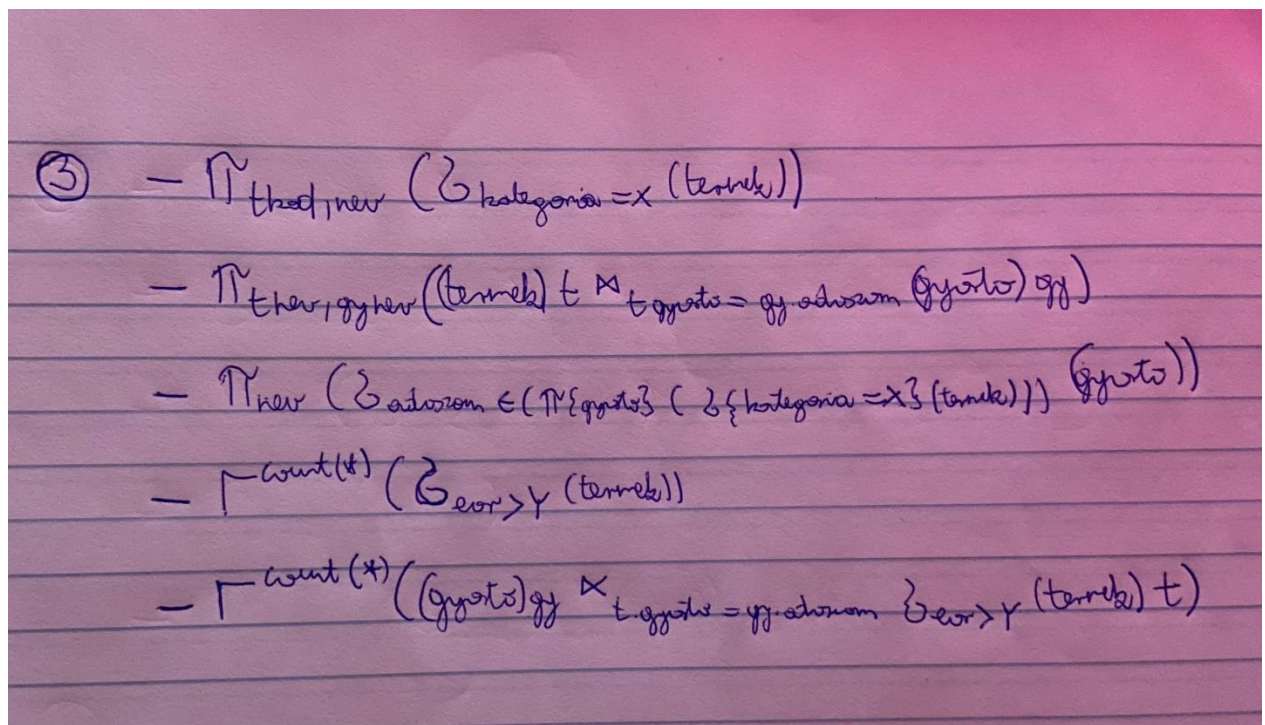 ③ – π tkod, nev (σ kategoria = x (termek))
– π t.nev, gy.nev ((termek) t ⋈ t.gyarto = gy.adoszam (gyarto) gy)
– π nev (σ adoszam ∈ (π{gyarto} (σ{kategoria = x} (termek))) (gyarto))
– Γ count(*) (σ ear > Y (termek))
– Γ count(*) ((gyarto) gy ⋉ t.gyarto = gy.adoszam σ ear > Y (termek) t)